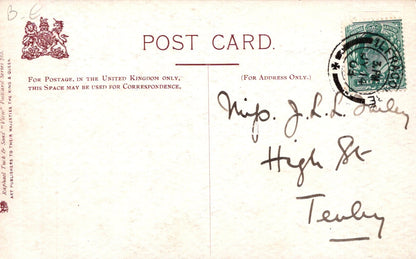 B-C
POST CARD.
FOR POSTAGE, IN THE UNITED KINGDOM ONLY,
THIS SPACE MAY BE USED FOR CORRESPONDENCE.
(FOR ADDRESS ONLY.)
Miss J. L. L.
High St
Tenby
Raphael Tuck & Sons' "View" Postcard Series
ART PUBLISHERS TO THEIR MAJESTIES THE KING & QUEEN.